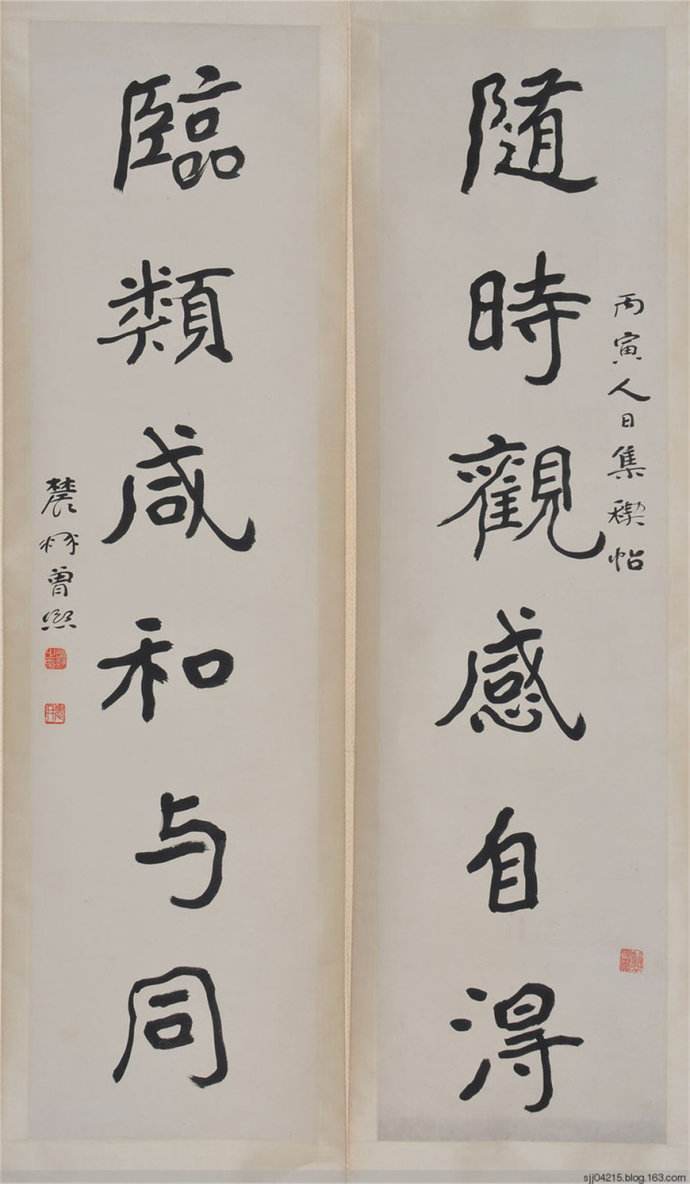 丙寅人日集禊帖
隨時觀感自得
臨類咸和与同
農髯曾熙
sjj04215.blog.163.com